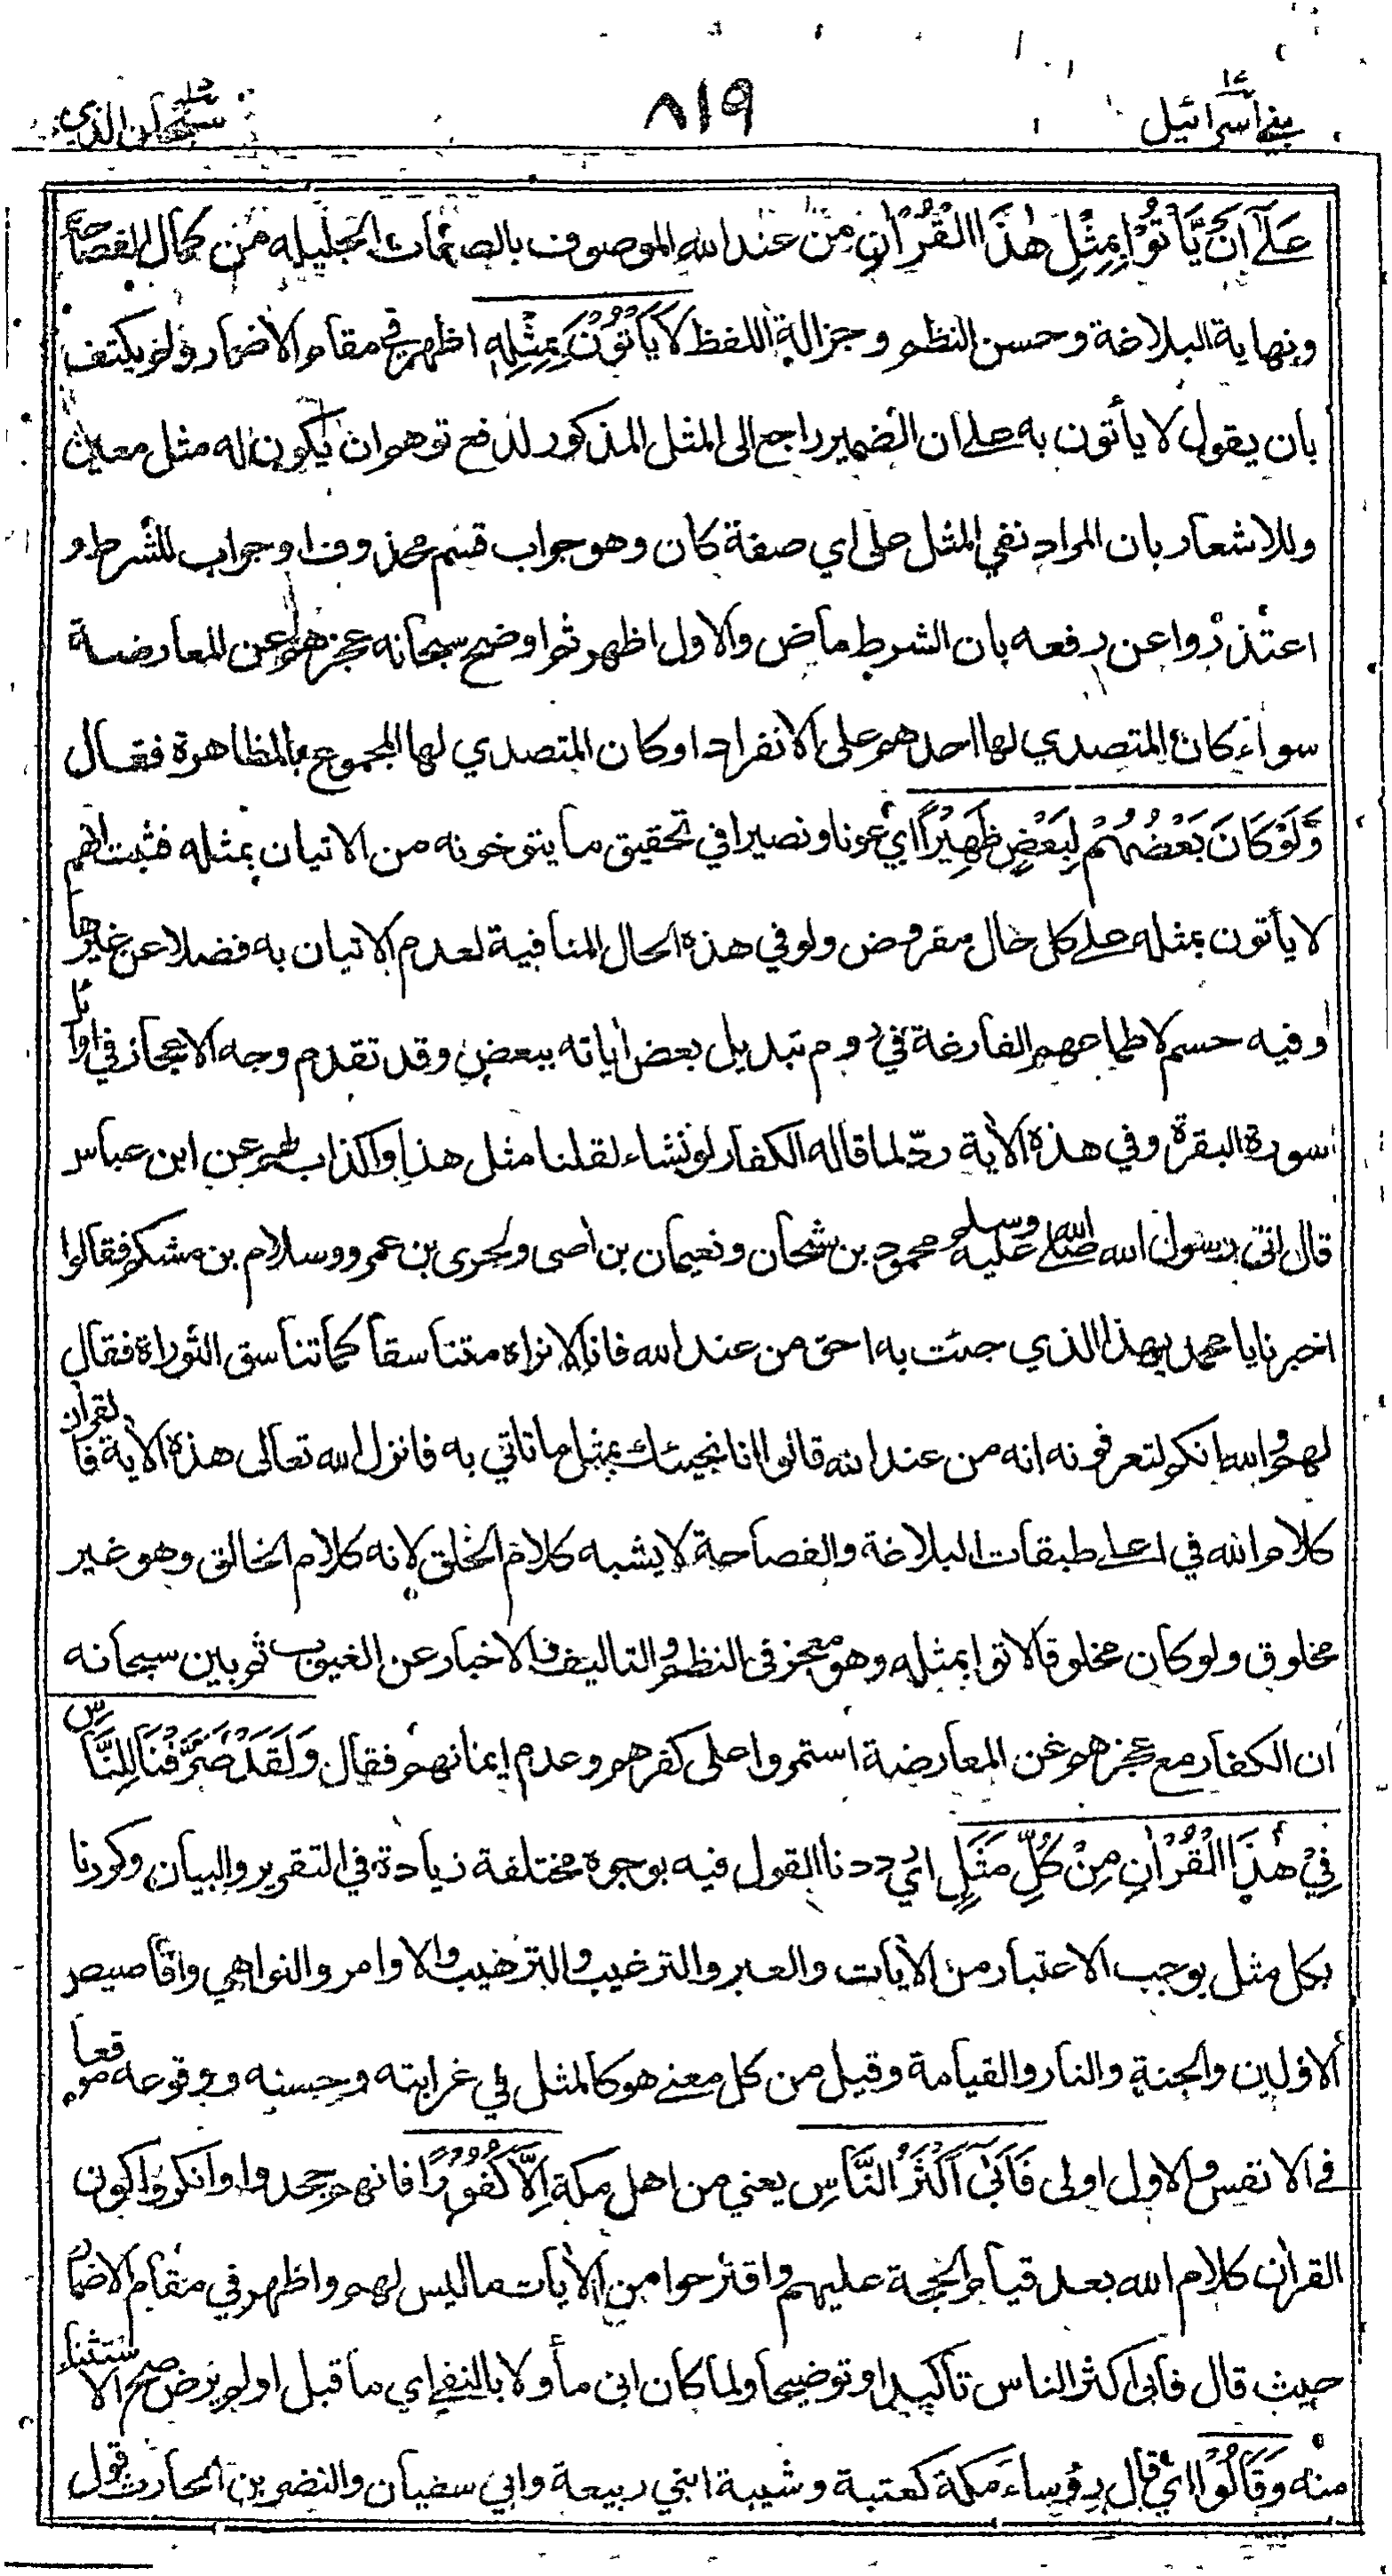 بني اسرائيل ١٧
٨١٩
سبحن الذي
عَلٰٓى اَنْ يَّاْتُوْا بِمِثْلِ هٰذَا الْقُرْاٰنِ من عند الله الموصوف بالصفات الجليله من كمال الفصاحة
ونهاية البلاغة وحسن النظم وجزالة اللفظ لَا يَأْتُوْنَ بِمِثْلِهٖ اظهر في مقام الاضمار ولم يكتف
بان يقول لا يأتون به على ان الضمير راجع الى المثل المذكور لدفع توهم ان يكون له مثل معين
وللاشعار بان المراد نفي المثل على اي صفة كان وهو جواب قسم محذوف او جواب للشرط و
اعتذروا عن رفعه بان الشرط ماض والاول اظهر ثم اوضح سبحانه عجزهم عن المعارضة
سواء كان المتصدي لها احدهم على الانفراد او كان المتصدي لها المجموع بالمظاهرة فقال
وَلَوْ كَانَ بَعْضُهُمْ لِبَعْضٍ ظَهِيْرًا اي عونا ونصيرا في تحقيق ما يتوخونه من الاتيان بمثله فثبت انهم
لا يأتون بمثله على كل حال مفروض ولو في هذه الحال المنافية لعدم الاتيان به فضلا عن غيرها
وفيه حسم لاطماعهم الفارغة في روم تبديل بعض اياته ببعض وقد تقدم وجه الاعجاز في اوائل
سورة البقرة وفي هذه الأية ردّ لما قاله الكفار لو نشاء لقلنا مثل هذا واكذاب لهم عن ابن عباس
قال اتى رسول الله صلى الله عليه وسلم محمود بن شحان ونعيمان بن اصى وبحرى بن عمرو وسلام بن مشكم فقالوا
اخبرنا يا محمد بهذا الذي جئت به احق من عند الله فانا لا نراه متناسقا كما تناسق التوراة فقال
لهم والله انكم لتعرفونه انه من عند الله قالوا انا نجيئك بمثل ما تاتي به فانزل الله تعالى هذه الأية فالقرأن
كلام الله في اعلى طبقات البلاغة والفصاحة لا يشبه كلام الخلق لانه كلام الخالق وهو غير
مخلوق ولو كان مخلوقا لاتوا بمثله وهو معجز في النظم والتاليف والاخبار عن الغيوب ثم بين سبحانه
ان الكفار مع عجزهم عن المعارضة استمروا على كفرهم وعدم إيمانهم فقال وَلَقَدْ صَرَّفْنَا لِلنَّاسِ
فِيْ هٰذَا الْقُرْاٰنِ مِنْ كُلِّ مَثَلٍ اي رددنا القول فيه بوجوه مختلفة زيادة في التقرير والبيان وكررنا
بكل مثل يوجب الاعتبار من الأيات والعبر والترغيب والترهيب والاوامر والنواهي واقاصيص
الاولين والجنة والنار والقيامة وقيل من كل معنى هو كالمثل في غرابته وحسنه ووقوعه موقعا
في الانفس والاول اولى فَاَبٰٓى اَكْثَرُ النَّاسِ يعني من اهل مكة اِلَّا كُفُوْرًا فانهم جحدوا وانكروا كون
القرأن كلام الله بعد قيام الحجة عليهم واقترحوا من الأيات ما ليس لهم واظهر في مقام الاضمار
حيث قال فأبى اكثر الناس تأكيدا وتوضيحا ولما كان ابى مأولا بالنفي اي ما قبل او لم يرض صح الاستثناء
منه وَقَالُوْا اي قال رؤساء مكة كعتبة وشيبة ابني ربيعة وابي سفيان والنضر بن الحارث قول